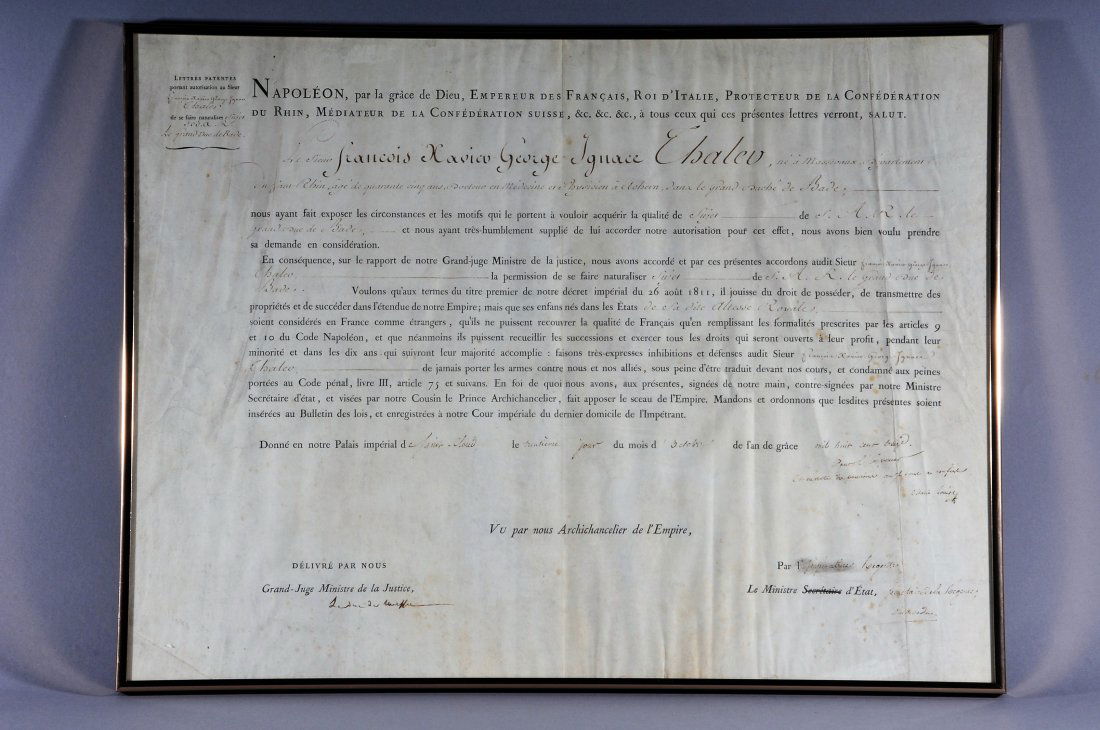 LETTRES PATENTES
portant autorisation au Sieur
Thaler
de se faire naturaliser Sujet
de S. A. R.
Le grand Duc de Bade.
NAPOLÉON, par la grâce de Dieu, EMPEREUR DES FRANÇAIS, ROI D'ITALIE, PROTECTEUR DE LA CONFÉDÉRATION
DU RHIN, MÉDIATEUR DE LA CONFÉDÉRATION SUISSE, &c. &c. &c., à tous ceux qui ces présentes lettres verront, SALUT.
Le Sieur François Xavier George Ignace Thaler, né à Massevaux, Département
du haut Rhin, âgé de quarante cinq ans, Docteur en Médecine et Physicien à Achern, dans le grand Duché de Bade,
nous ayant fait exposer les circonstances et les motifs qui le portent à vouloir acquérir la qualité de Sujet de S. A. R. le
grand Duc de Bade, et nous ayant très-humblement supplié de lui accorder notre autorisation pour cet effet, nous avons bien voulu prendre
sa demande en considération.
En conséquence, sur le rapport de notre Grand-juge Ministre de la justice, nous avons accordé et par ces présentes accordons audit Sieur François Xavier George Ignace
Thaler la permission de se faire naturaliser Sujet de S. A. R. le grand Duc de
Bade. Voulons qu'aux termes du titre premier de notre décret impérial du 26 août 1811, il jouisse du droit de posséder, de transmettre des
propriétés et de succéder dans l'étendue de notre Empire; mais que ses enfans nés dans les États de Sa dite Altesse Royale,
soient considérés en France comme étrangers, qu'ils ne puissent recouvrer la qualité de Français qu'en remplissant les formalités prescrites par les articles 9
et 10 du Code Napoléon, et que néanmoins ils puissent recueillir les successions et exercer tous les droits qui seront ouverts à leur profit, pendant leur
minorité et dans les dix ans qui suivront leur majorité accomplie : faisons très-expresses inhibitions et défenses audit Sieur François Xavier George Ignace
Thaler de jamais porter les armes contre nous et nos alliés, sous peine d'être traduit devant nos cours, et condamné aux peines
portées au Code pénal, livre III, article 75 et suivans. En foi de quoi nous avons, aux présentes, signées de notre main, contre-signées par notre Ministre
Secrétaire d'état, et visées par notre Cousin le Prince Archichancelier, fait apposer le sceau de l'Empire. Mandons et ordonnons que lesdites présentes soient
insérées au Bulletin des lois, et enregistrées à notre Cour impériale du dernier domicile de l'Impétrant.
Donné en notre Palais impérial de Saint Cloud le trentième jour du mois d'Octobre de l'an de grâce mil huit cent treize.
Pour l'Empereur
VU par nous Archichancelier de l'Empire,
DÉLIVRÉ PAR NOUS
Par l'Impératrice Régente
Grand-Juge Ministre de la Justice,
Le Ministre Secrétaire d'État,